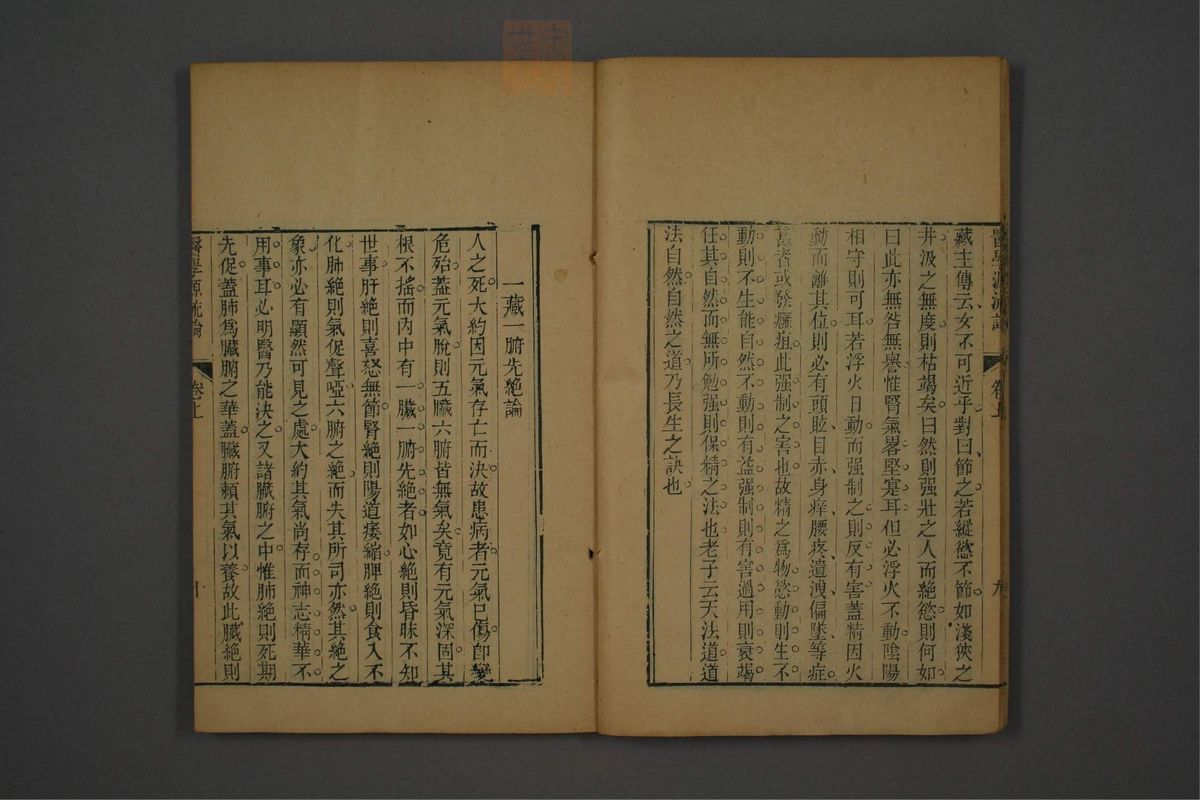 醫學源流論 卷上 九
藏主傳云女不可近乎對曰節之若縱慾不節如淺狹之
井汲之無度則枯竭矣曰然則强壯之人而絕慾則何如
曰此亦無咎無譽惟腎氣畧堅寔耳但必浮火不動陰陽
相守則可耳若浮火日動而强制之則反有害蓋精因火
動而離其位則必有頭眩目赤身痒腰疼遺洩偏墜等症
甚者或發癰疽此强制之害也故精之爲物慾動則生不
動則不生能自然不動則有益强制則有害過用則衰竭
任其自然而無所勉强則保精之法也老子云天法道道
法自然自然之道乃長生之訣也
一藏一腑先絕論
人之死大約因元氣存亡而決故患病者元氣已傷卽變
危殆蓋元氣脫則五臟六腑皆無氣矣竟有元氣深固其
根不搖而內中有一臟一腑先絕者如心絕則昏昧不知
世事肝絕則喜怒無節腎絕則陽道痿縮脾絕則食入不
化肺絕則氣促聲啞六腑之絕而失其所司亦然其絕之
象亦必有顯然可見之處大約其氣尚存而神志精華不
用事耳必明醫乃能決之又諸臟腑之中惟肺絕則死期
先促蓋肺爲臟腑之華蓋臟腑賴其氣以養故此臟絕則
醫學源流論 卷上 十